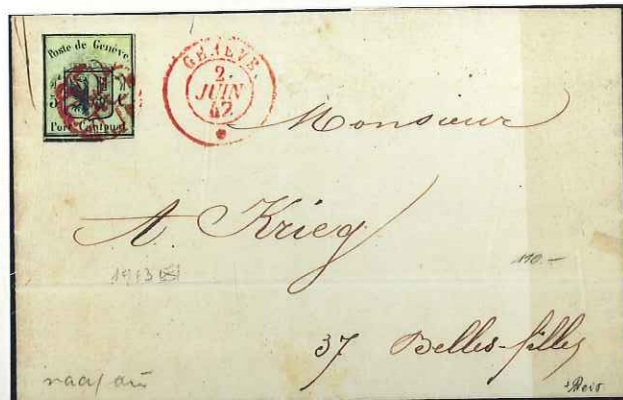 Poste de Genève
Port Cantonal
GENÈVE
2
JUIN
42
Monsieur
A. Krieg
37 Belles-filles